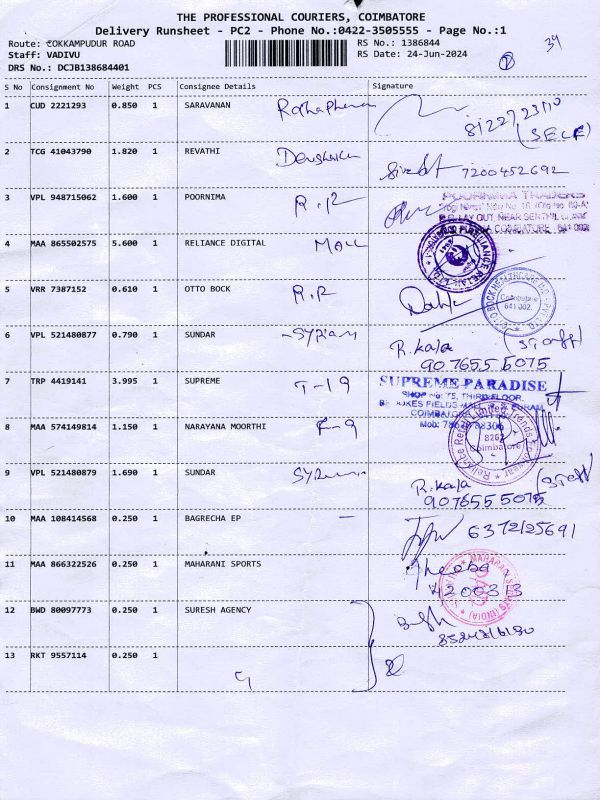 THE PROFESSIONAL COURIERS, COIMBATORE
Delivery Runsheet - PC2 - Phone No.:0422-3505555 - Page No.:1
Route: COKKAMPUDUR ROAD RS No.: 1386844 39
Staff: VADIVU RS Date: 24-Jun-2024
DRS No.: DCJB138684401
S No Consignment No Weight PCS Consignee Details Signature
1 CUD 2221293 0.850 1 SARAVANAN
(SELF)
2 TCG 41043790 1.820 1 REVATHI 7200452692
3 VPL 948715062 1.600 1 POORNIMA R.R POORNIMA TRADERS
COIMBATORE - 641 002
4 MAA 865502575 5.600 1 RELIANCE DIGITAL MALL
5 VRR 7387152 0.610 1 OTTO BOCK R.R
Coimbatore
641 002.
6 VPL 521480877 0.790 1 SUNDAR R.Kala (Staff)
9076555075
7 TRP 4419141 3.995 1 SUPREME T-19 SUPREME PARADISE
SHOP No: T5, THIRD FLOOR,
8 MAA 574149814 1.150 1 NARAYANA MOORTHI F-9
Coimbatore
9 VPL 521480879 1.690 1 SUNDAR R.Kala (Staff)
9076555075
10 MAA 108414568 0.250 1 BAGRECHA EP - 6372125691
11 MAA 866322526 0.250 1 MAHARANI SPORTS
12 BWD 80097773 0.250 1 SURESH AGENCY
13 RKT 9557114 0.250 1